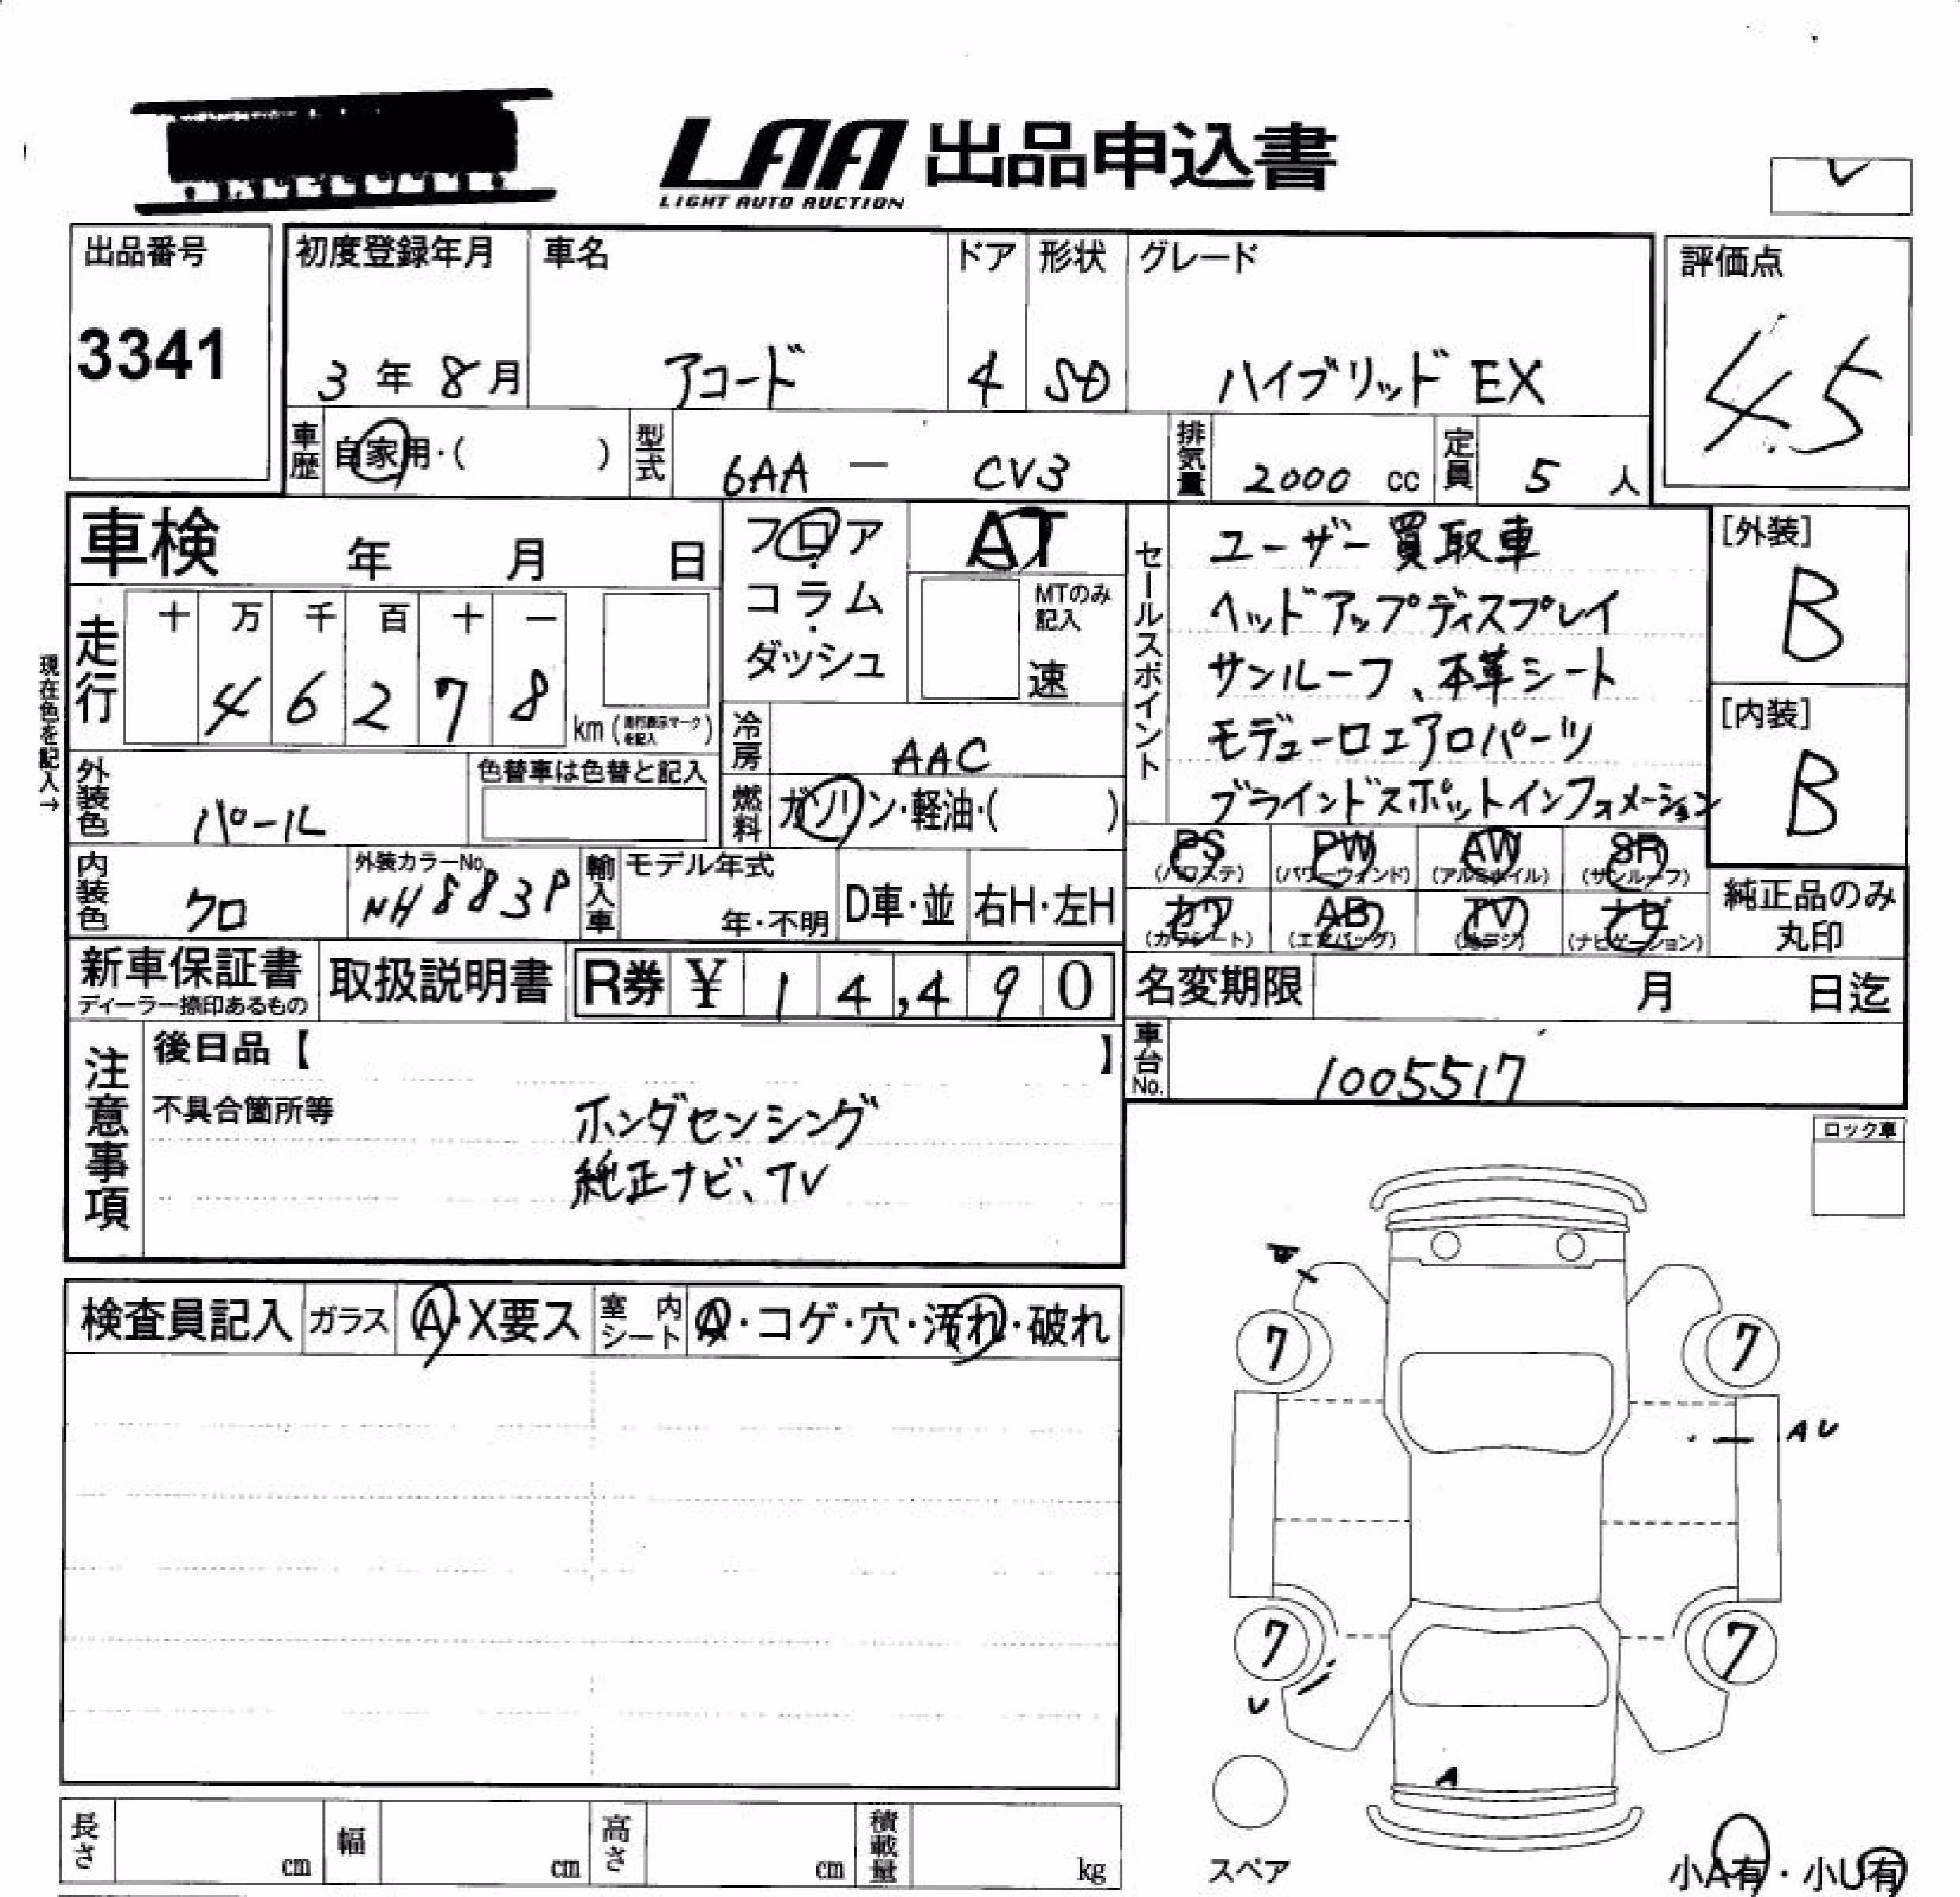 LAA 出品申込書
LIGHT AUTO AUCTION
出品番号
3341
初度登録年月
3年8月
車名
アコード
ドア
4
形状
SD
グレード
ハイブリッド EX
評価点
4.5
車歴
自家用・( )
型式
6AA - CV3
排気量
2000 cc
定員
5 人
車検 年 月 日
フロア・
コラム・
ダッシュ
AT
MTのみ
記入
速
現在色を記入→
走行
十 万 千 百 十 一
4 6 2 7 8
km (走行表示マークを記入)
冷房
AAC
燃料
ガソリン・軽油・( )
外装色
パール
色替車は色替と記入
内装色
クロ
外装カラーNo.
NH883P
輸入車
モデル年式
年・不明
D車・並
右H・左H
セールスポイント
ユーザー買取車
ヘッドアップディスプレイ
サンルーフ、本革シート
モデューロエアロパーツ
ブラインドスポットインフォメーション
[外装]
B
[内装]
B
PS
(パワステ)
PW
(パワーウィンド)
AW
(アルミホイル)
SR
(サンルーフ)
カワ
(カワシート)
AB
(エアバッグ)
TV
(地デジ)
ナビ
(ナビゲーション)
純正品のみ
丸印
新車保証書
ディーラー捺印あるもの
取扱説明書
R券 ¥ 14,490
名変期限 月 日迄
車台No.
1005517
注意事項
後日品【 】
不具合箇所等
ホンダセンシング
純正ナビ、TV
ロック車
検査員記入
ガラス
A・X要ス
室内
シート
A・コゲ・穴・汚れ・破れ
7
7
AU
7
7
U
A
スペア
小A有・小U有
長さ cm
幅 cm
高さ cm
積載量 kg